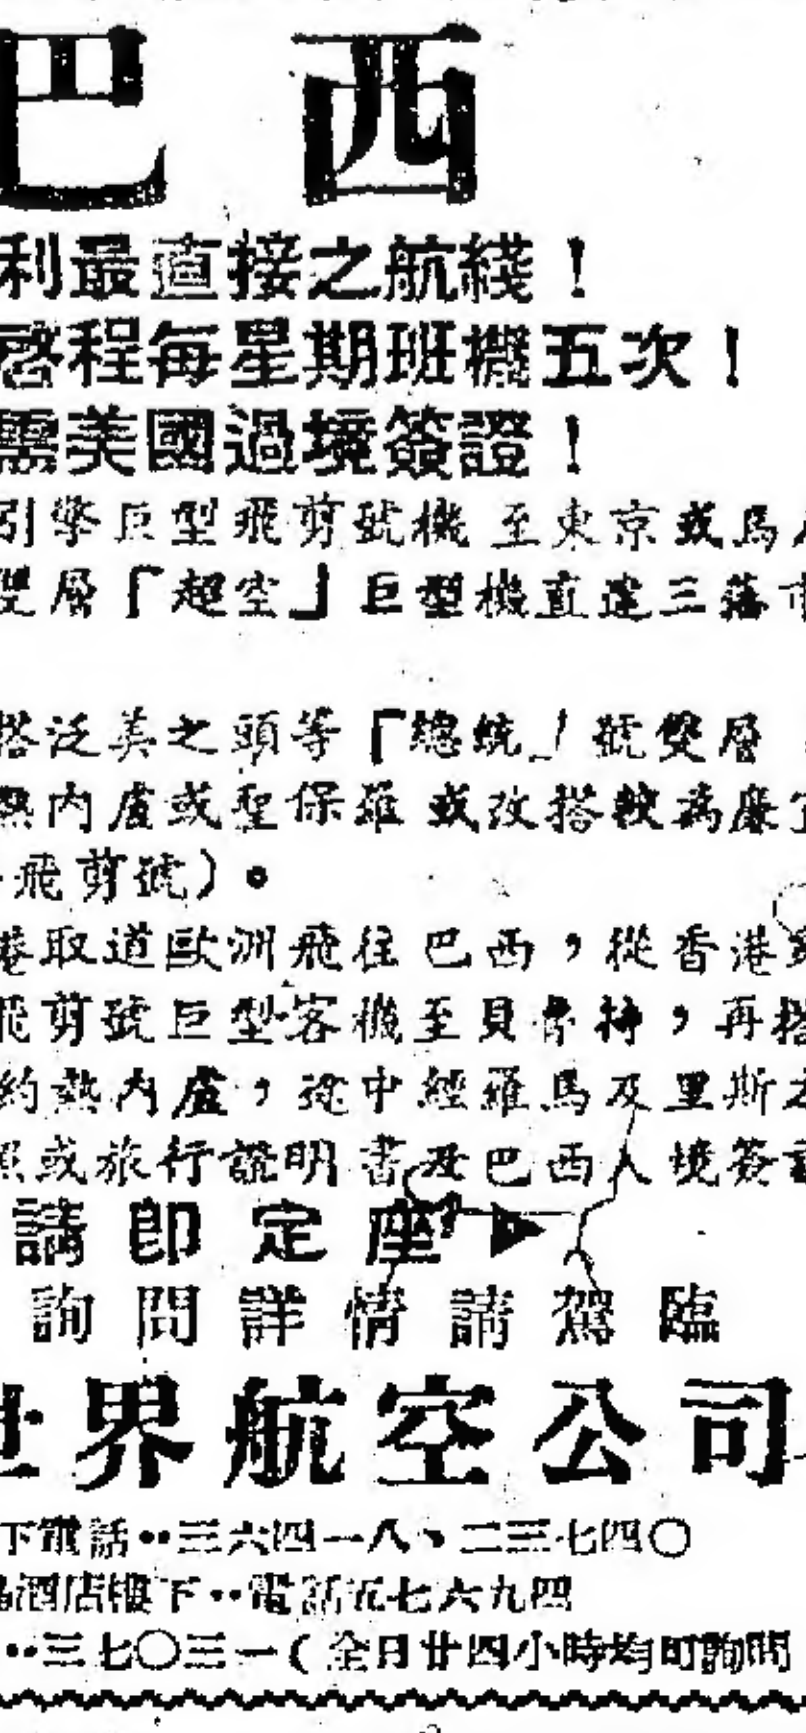 巴西
利最直接之航綫！
啓程每星期班機五次！
需美國過境簽證！
引擎巨型飛剪號機 至東京或馬
雙層「超空」巨型機直達三藩市
搭泛美之頭等「總統」號雙層
熱內盧或聖保羅 或改搭較為廉宜
飛剪號）。
港取道歐洲飛往巴西，從香港
飛剪號巨型客機至貝魯特，再搭
約熱內盧，途中經羅馬及里斯本
照或旅行證明書及巴西入境簽證
請即定座▶
詢問詳情請駕臨
世界航空公司
下電話：三六四一八、二三七四〇
酒店樓下：電話五七六九四
：三七〇三一（全日廿四小時均可詢問